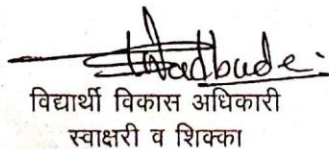 विद्यार्थी विकास अधिकारी
स्वाक्षरी व शिक्का